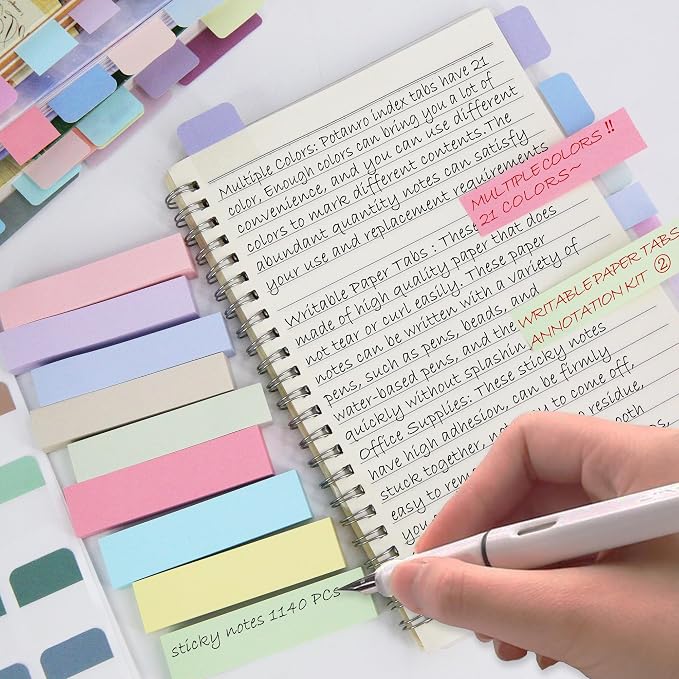 Multiple Colors: Potanro index tabs have 21
color, Enough colors can bring you a lot of
convenience, and you can use different
colors to mark different contents.The
abundant quantity notes can satisfy
your use and replacement requirements
MULTIPLE COLORS !!
21 COLORS~
Writable Paper Tabs : These
made of high quality paper that does
not tear or curl easily. These paper
notes can be written with a variety of
pens, such as pens, beads, and
water-based pens, and the
quickly without splashin
WRITABLE PAPER TABS
ANNOTATION KIT ②
Office Supplies: These sticky notes
have high adhesion, can be firmly
stuck together, not to come off,
easy to remo residue,
you ooth
sticky notes 1140 PCs